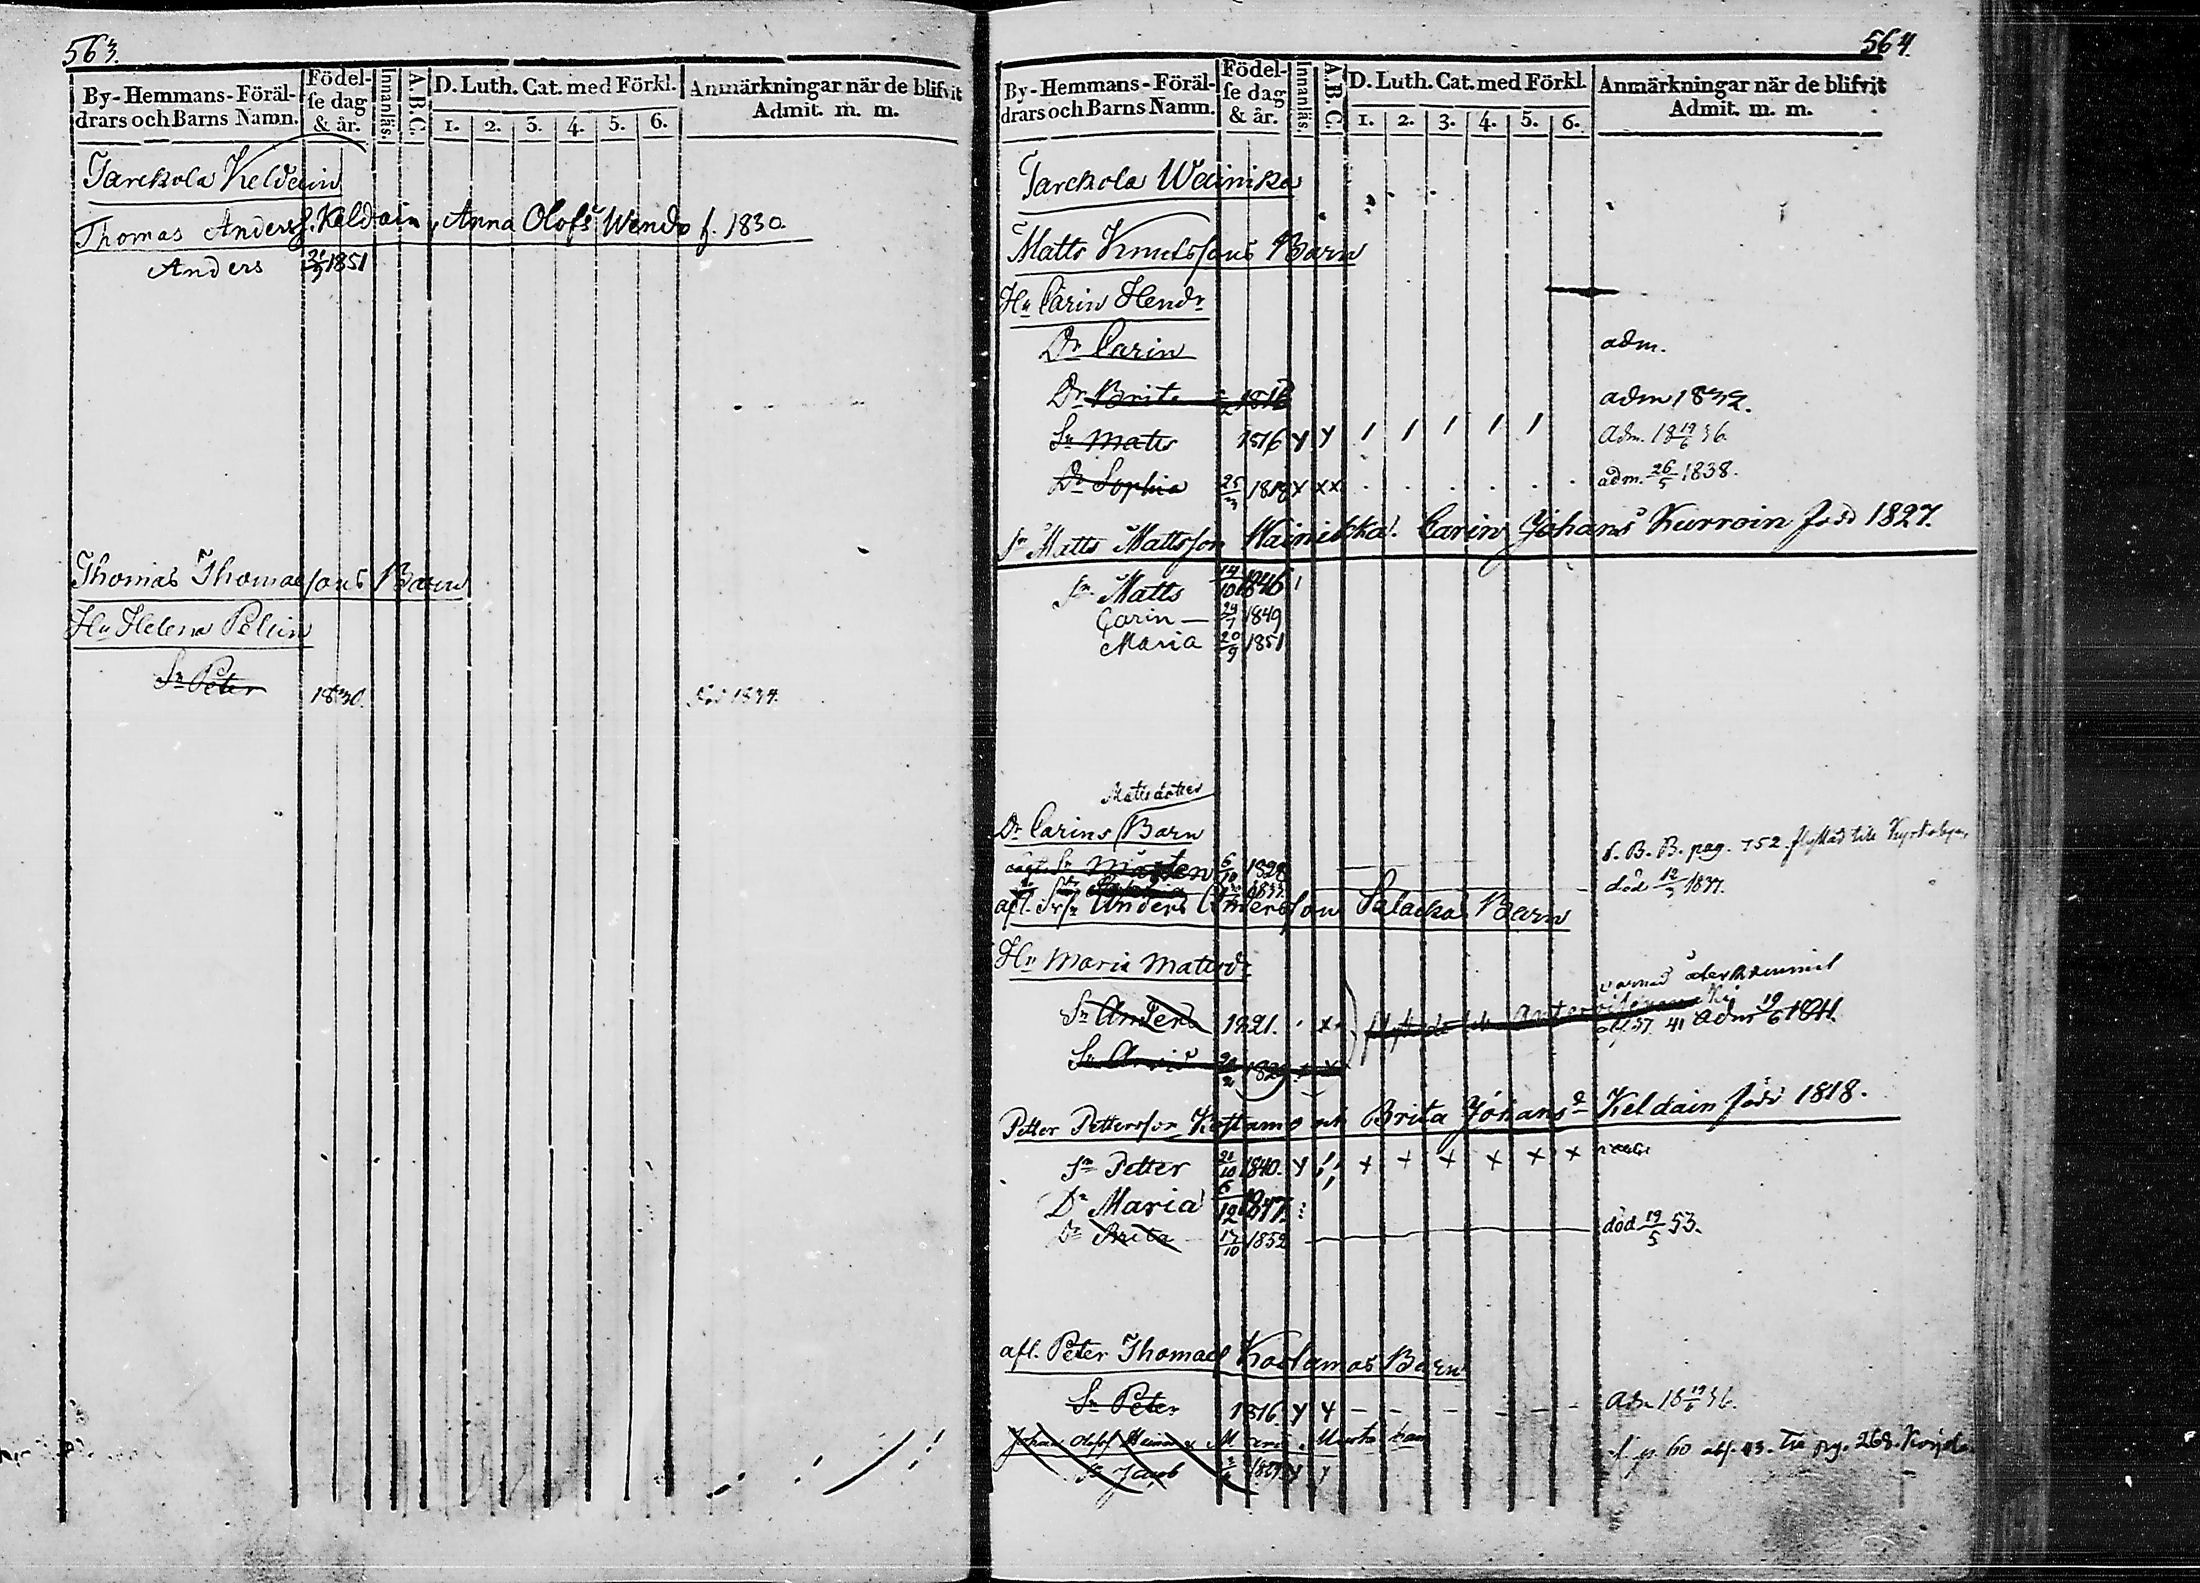 563.
By-Hemmans-Föräl-
drars och Barns Namn.
Födel-
se dag
& år.
Innanläs.
A.B.C.
D. Luth. Cat. med Förkl.
1. 2. 3. 4. 5. 6.
Anmärkningar när de blifvit
Admit. m. m.
Tarckola Keldain
Thomas Anderss. Keldain, Anna Olofs Wendr f. 1830.
Anders 21/3 1851
Thomas Thomassons Barn
Hu Helena Pelcin
Sn Peter 1830. död 1834.
564.
By-Hemmans-Föräl-
drars och Barns Namn.
Födel-
se dag
& år.
Innanläs.
A.B.C.
D. Luth. Cat. med Förkl.
1. 2. 3. 4. 5. 6.
Anmärkningar när de blifvit
Admit. m. m.
Tarckola Wainika
Matts Knutssons Barn
Hu Carin Hendr
Dr Carin adm.
Dr Brita adm 1832.
Sn Matts 1816 y y 1 1 1 1 1 Adm. 18 19/6 36.
Dr Sophia 25/3 1818 x xx adm. 26/5 1838.
Sn Matts Mattsson Wainikka. Carin Johans Kurroin född 1827.
Sn Matts 14/10 1846
Carin 24/7 1849
Maria 20/9 1851
Mattsdotter
Dr Carins Barn
Sn Mårten 6/10 1828 f. B. B. pag. 752 flyttad till
död 12/3 1837.
afl. Anders Anderssons Salackas Barn
Hu Maria Matsd.
återkommit
Sn Anders 1821. 41 Adm 19/6 1841.
Sn Arvid
Petter Pettersson Kostamo och Brita Johans d Keldain född 1818.
Sn Petter 21/10 1840. y x x x x x x
Dr Maria 6/12 1847.
Dr Brita 17/10 1852 död 19/5 53.
afl. Peter Thomass Kostamos Barn
Sn Peter 1816. y y Adm 18 19/6 36.
Johan Olofss
Sn Jacob